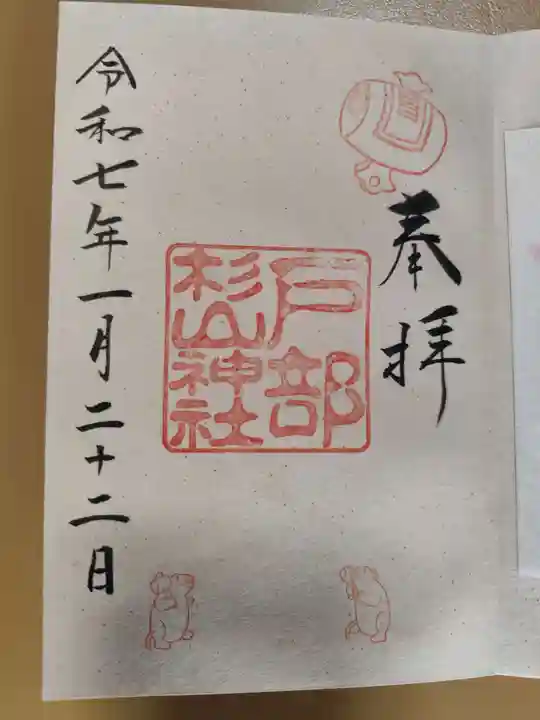 奉拝
戸部
杉山神社
令和七年一月二十二日